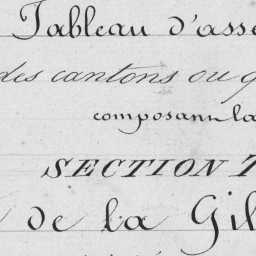 Tableau d'asse
des cantons ou q
composant la
SECTION
de la Gil